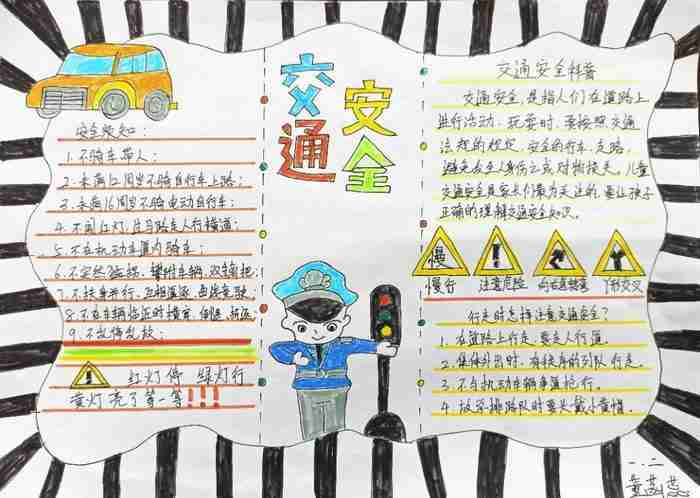 交通
安全
安全须知：
1.不骑车带人；
2.未满12周岁不骑自行车上路；
3.未满16周岁不骑电动自行车；
4.不闯红灯，过马路走人行横道；
5.不在机动车道内骑车；
6.不突然猛拐，攀附车辆，双手离把；
7.不扶身并行，互相追逐，曲折竞驶。
8.不在车辆临近时横穿
9.不乱停乱放；
红灯停 绿灯行
黄灯亮了等一等!!!
交通安全科普
交通安全，是指人们在道路上
进行活动、玩耍时，要按照交通
法规的规定，安全的行车、走路，
避免发生人身伤亡或对物损失。儿童
交通安全是家长们最为关注的，要让孩子
正确的理解交通安全知识。
慢
慢行
注意危险
向右急转弯
T形交叉
行走时怎样注意交通安全？
1.在道路上行走，要走人行道。
2.集体外出时，有秩序的列队行走。
3.不与机动车辆争道抢行。
4.放学排路队时要头戴小黄帽。
一.二